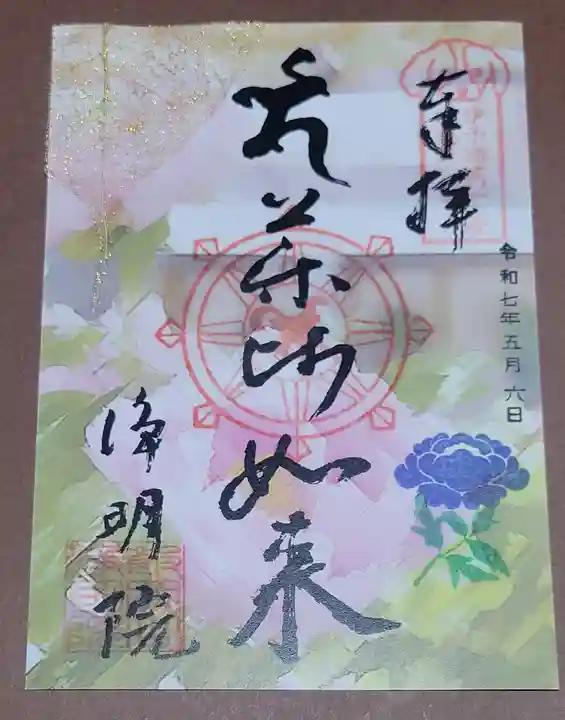 奉拝
令和七年五月六日
薬師如来
浄明院